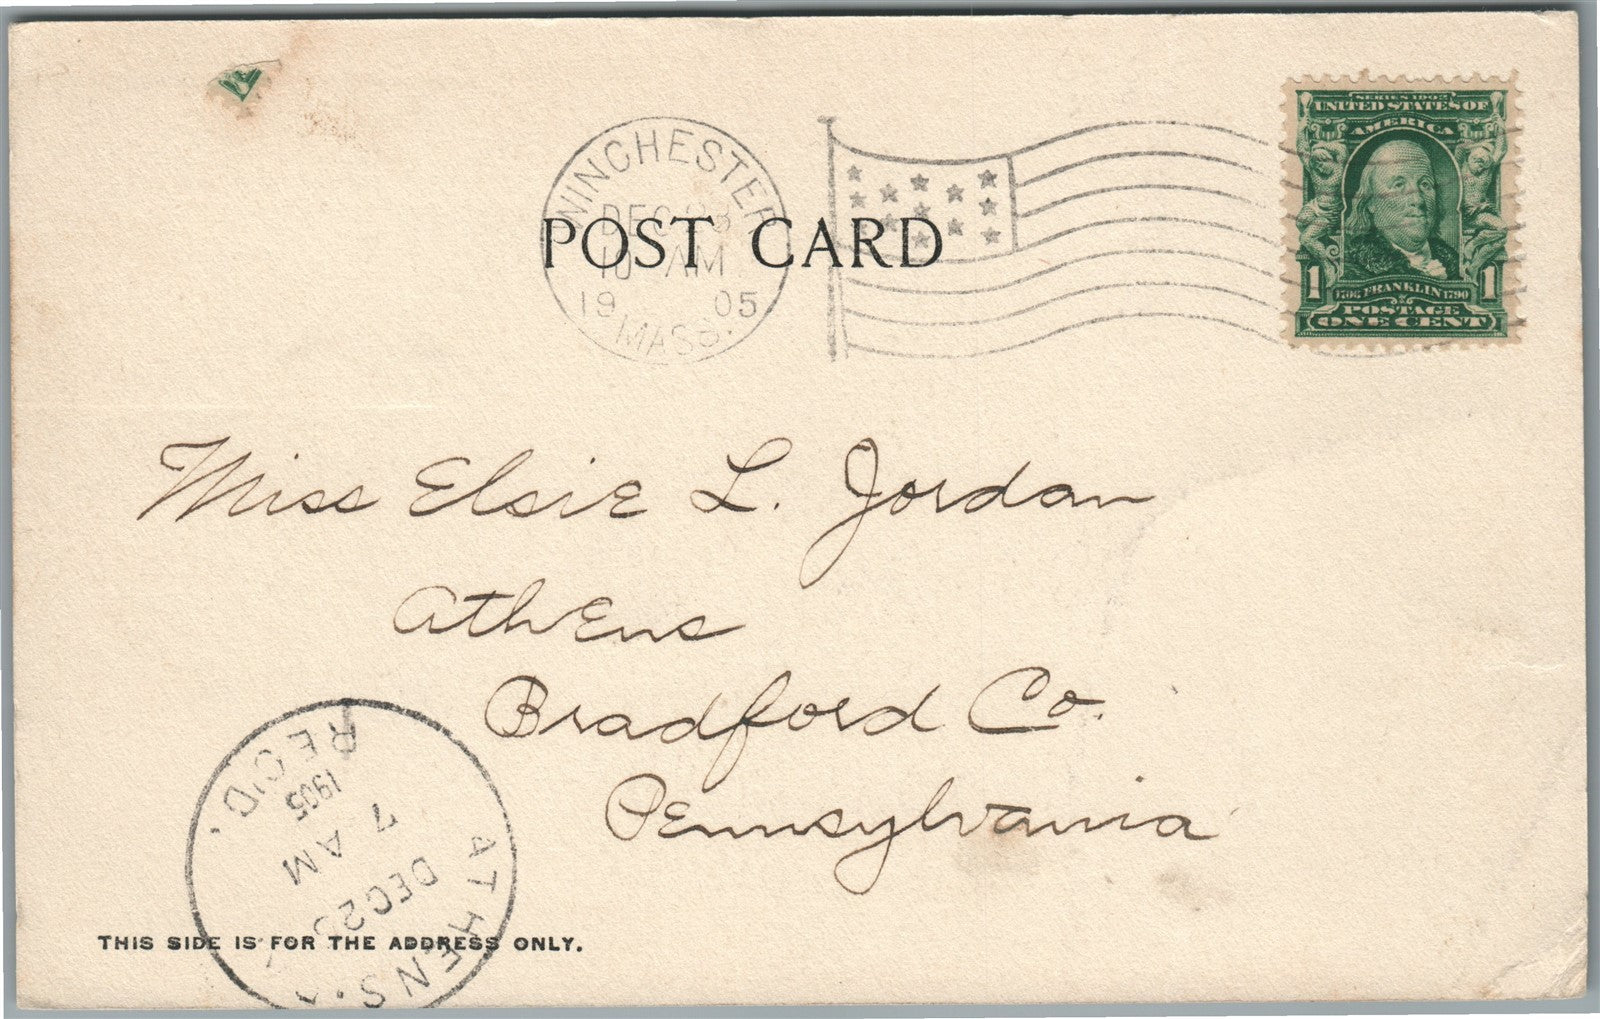 WINCHESTER
DEC
10 AM
19 05
MASS.
POST CARD
SERIES 1902
UNITED STATES OF
AMERICA
1 1706 FRANKLIN 1790 1
POSTAGE
ONE CENT
Miss Elsie L. Jordan
Athens
Bradford Co.
Pennsylvania
ATHENS.
DEC
7 AM
1905
REC'D.
THIS SIDE IS FOR THE ADDRESS ONLY.